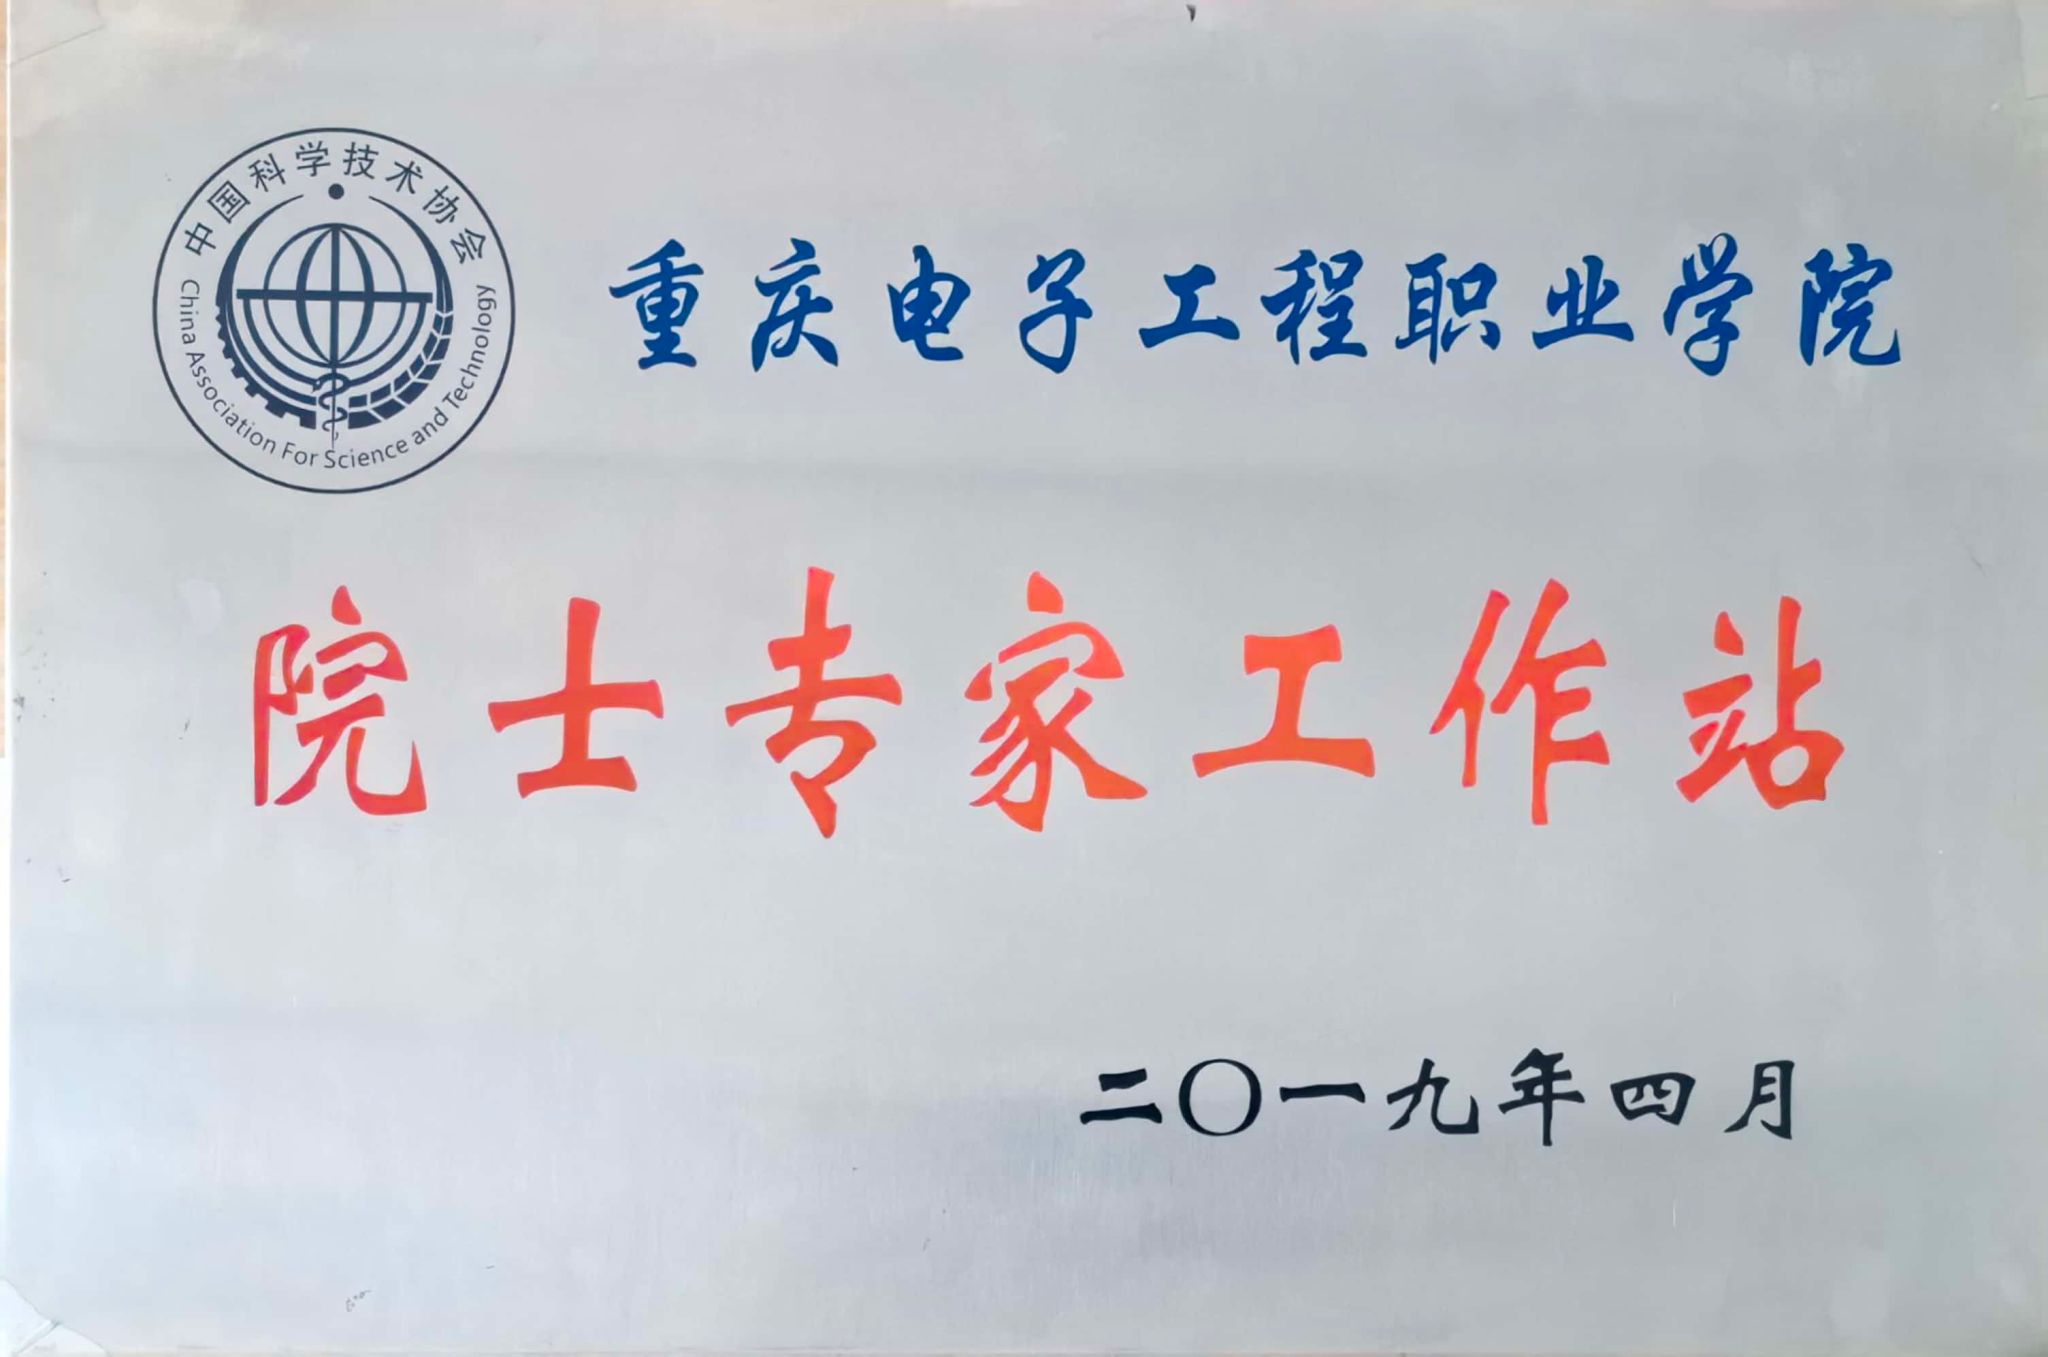 中国科学技术协会
China Association For Science and Technology
重庆电子工程职业学院
院士专家工作站
二〇一九年四月